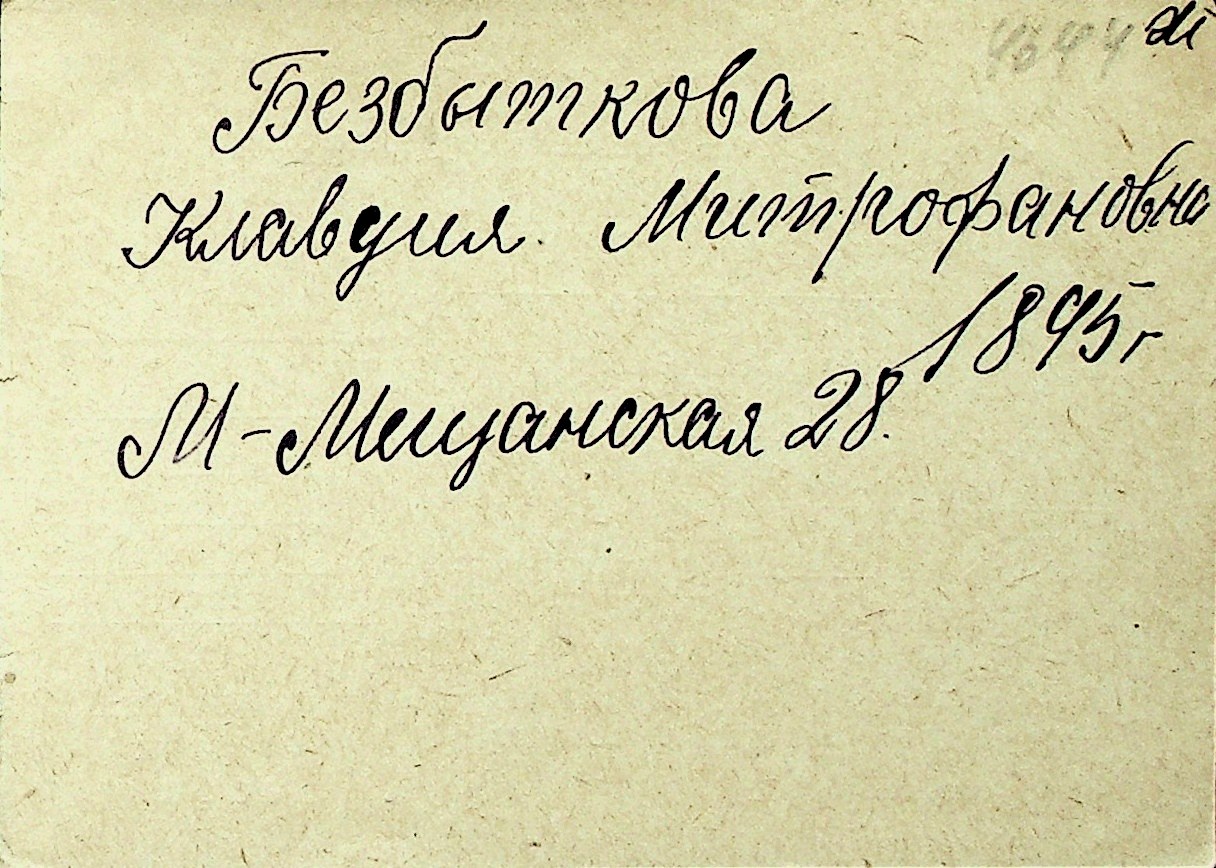 Безбыткова
Клавдия Митрофановна
1895г
М-Мещанская 28.